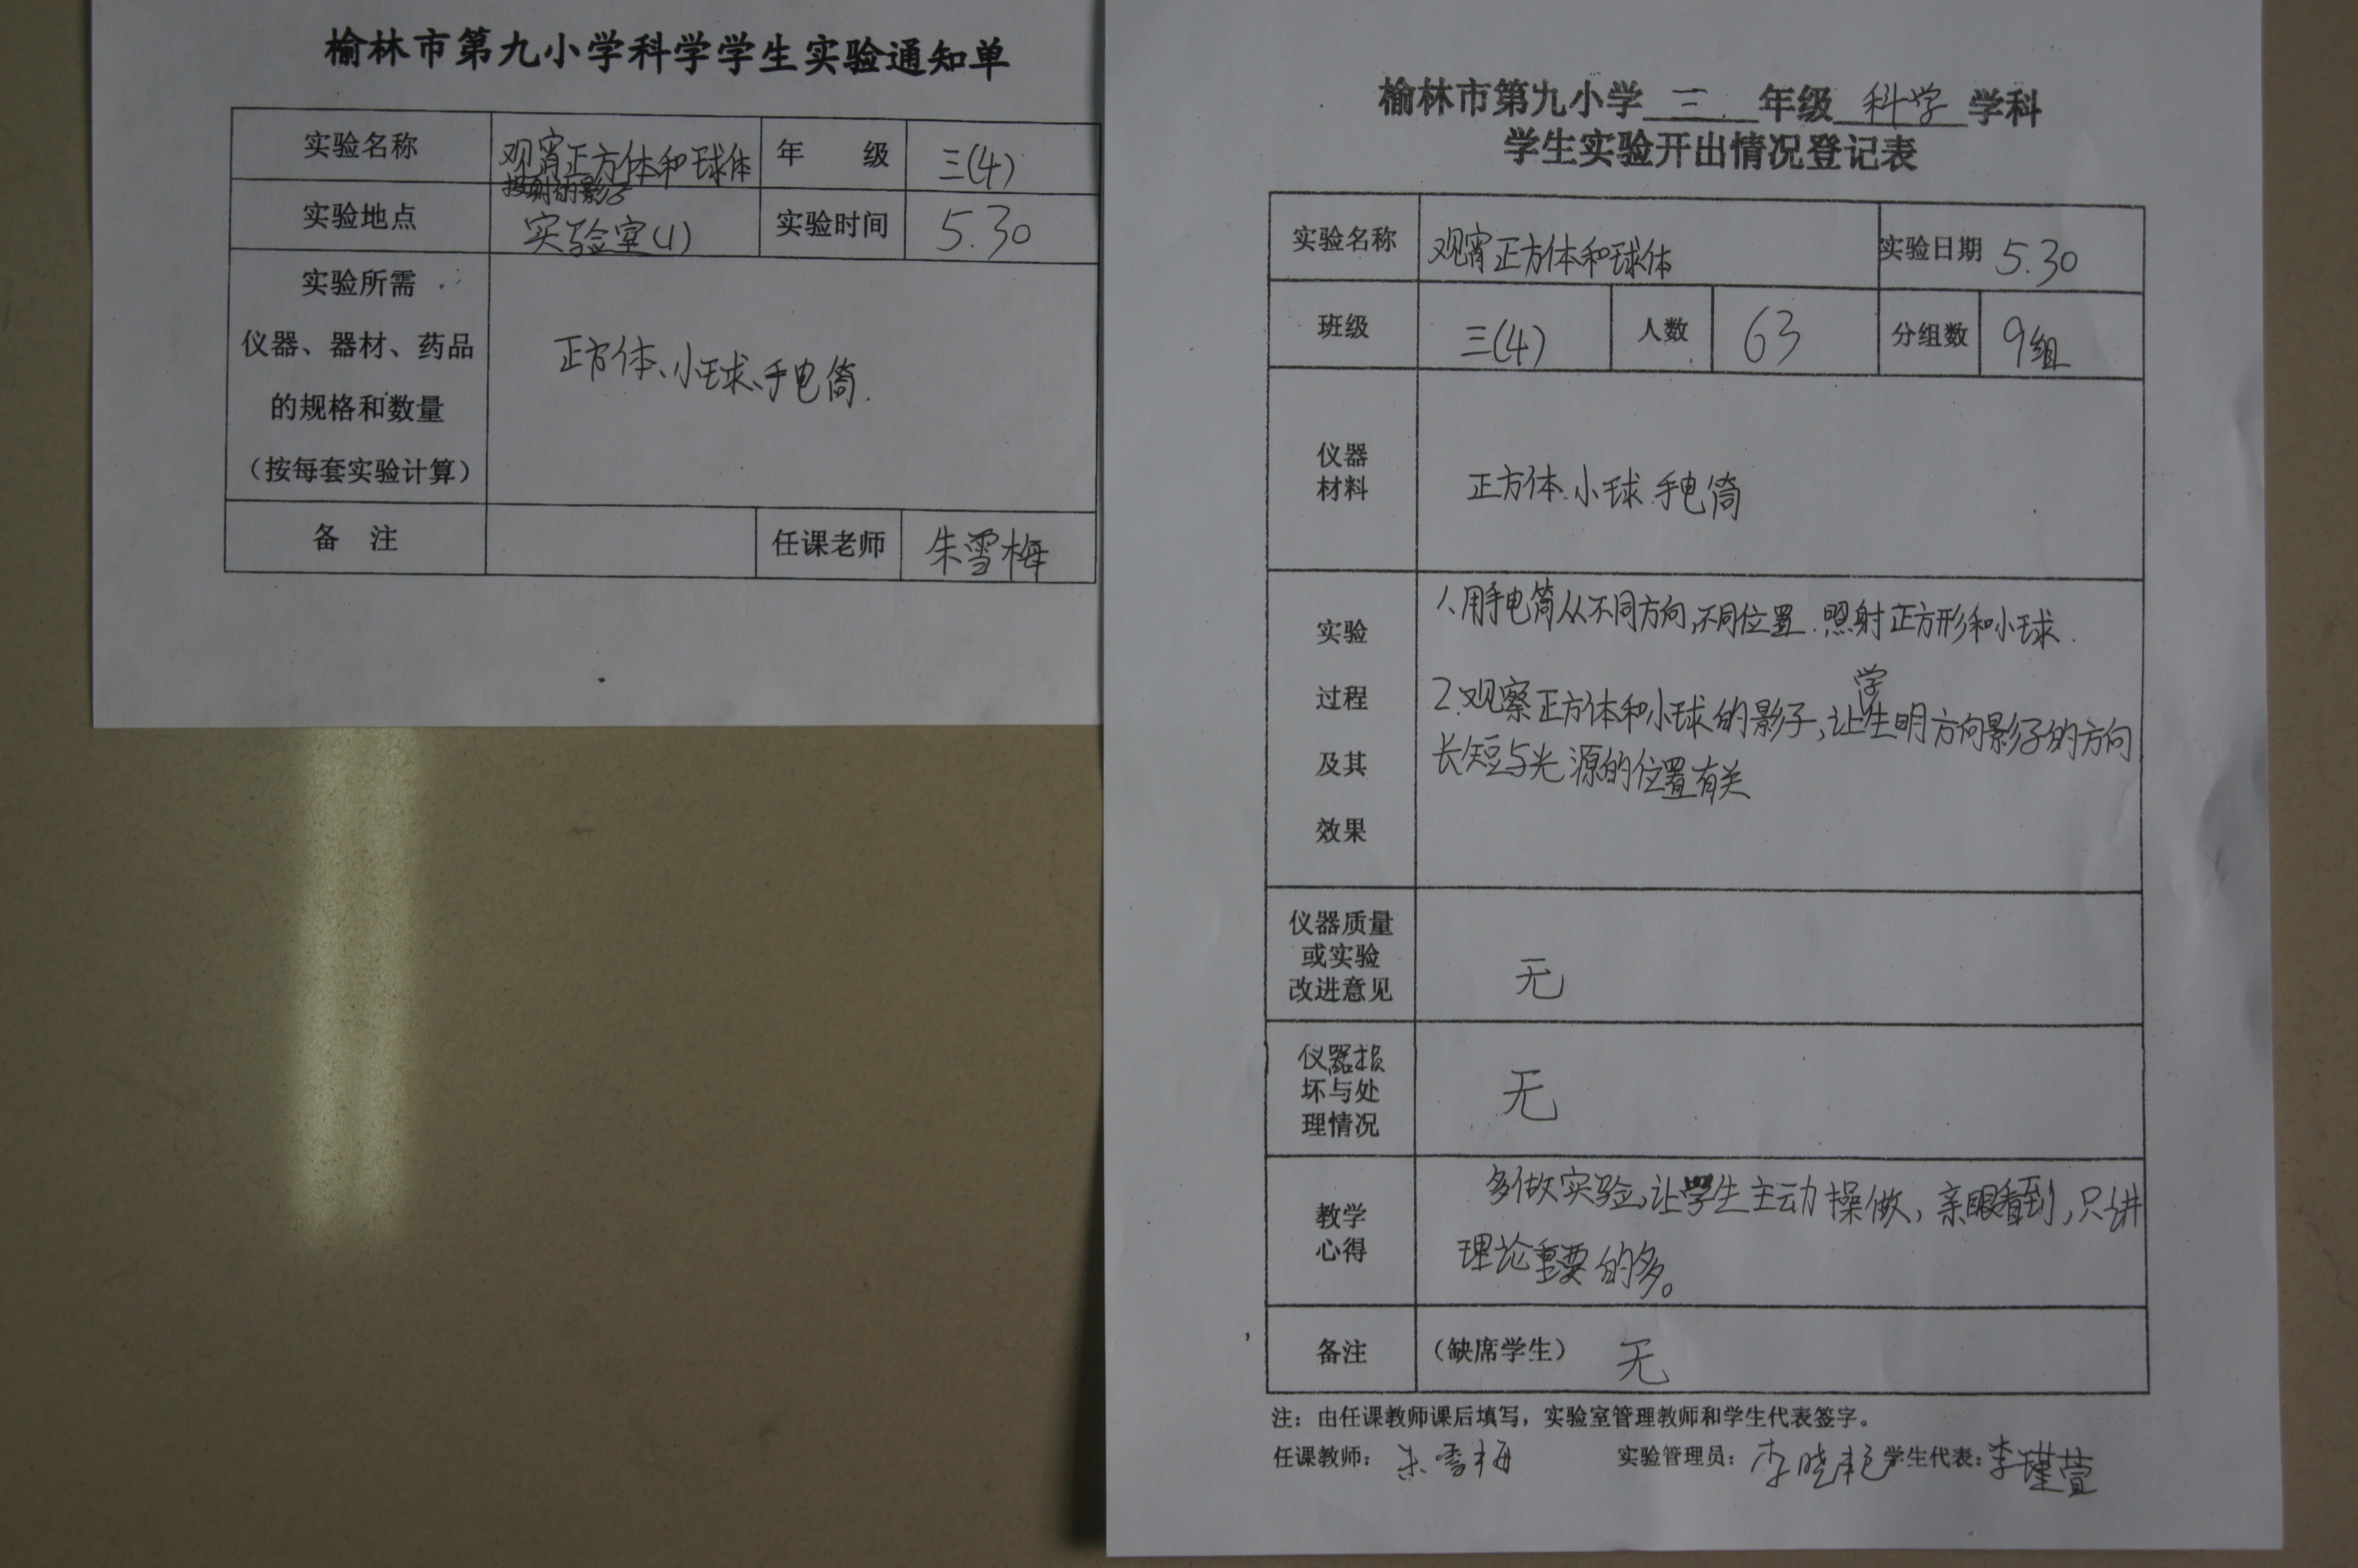 榆林市第九小学科学学生实验通知单
实验名称 观察正方体和球体投射的影子 年 级 三(4)
实验地点 实验室(1) 实验时间 5.30
实验所需
仪器、器材、药品
的规格和数量
(按每套实验计算)
正方体、小球、手电筒.
备 注 任课老师 朱雪梅
榆林市第九小学 三 年级 科学 学科
学生实验开出情况登记表
实验名称 观察正方体和球体 实验日期 5.30
班级 三(4) 人数 63 分组数 9组
仪器
材料
正方体.小球.手电筒
实验
过程
及其
效果
1、用手电筒从不同方向,不同位置.照射正方形和小球.
2.观察正方体和小球的影子,让学生明方向影子的方向
长短与光源的位置有关
仪器质量
或实验
改进意见
无
仪器损
坏与处
理情况
无
教学
心得
多做实验,让学生主动操做,亲眼看到,只讲
理论重要的多。
备注 (缺席学生) 无
注:由任课教师课后填写,实验室管理教师和学生代表签字。
任课教师: 朱雪梅 实验管理员: 李晓艳 学生代表: 李瑾萱